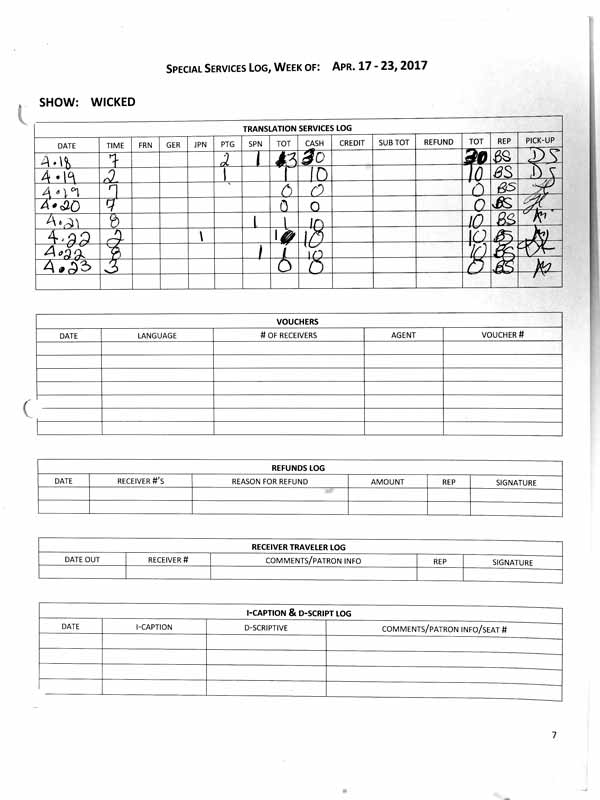 SPECIAL SERVICES LOG, WEEK OF: APR. 17 - 23, 2017
SHOW: WICKED
TRANSLATION SERVICES LOG
DATE TIME FRN GER JPN PTG SPN TOT CASH CREDIT SUB TOT REFUND TOT REP PICK-UP
4.18 7 2 1 3 30 30 BS DS
4.19 2 1 1 10 10 BS DS
4.19 7 0 0 0 BS
4.20 7 0 0 0 BS
4.21 8 1 1 10 10 BS
4.22 2 1 10 10 BS
4.22 8 1 1 10 10 BS
4.23 3 0 0 0 BS
VOUCHERS
DATE LANGUAGE # OF RECEIVERS AGENT VOUCHER #
REFUNDS LOG
DATE RECEIVER #'S REASON FOR REFUND AMOUNT REP SIGNATURE
RECEIVER TRAVELER LOG
DATE OUT RECEIVER # COMMENTS/PATRON INFO REP SIGNATURE
I-CAPTION & D-SCRIPT LOG
DATE I-CAPTION D-SCRIPTIVE COMMENTS/PATRON INFO/SEAT #
7